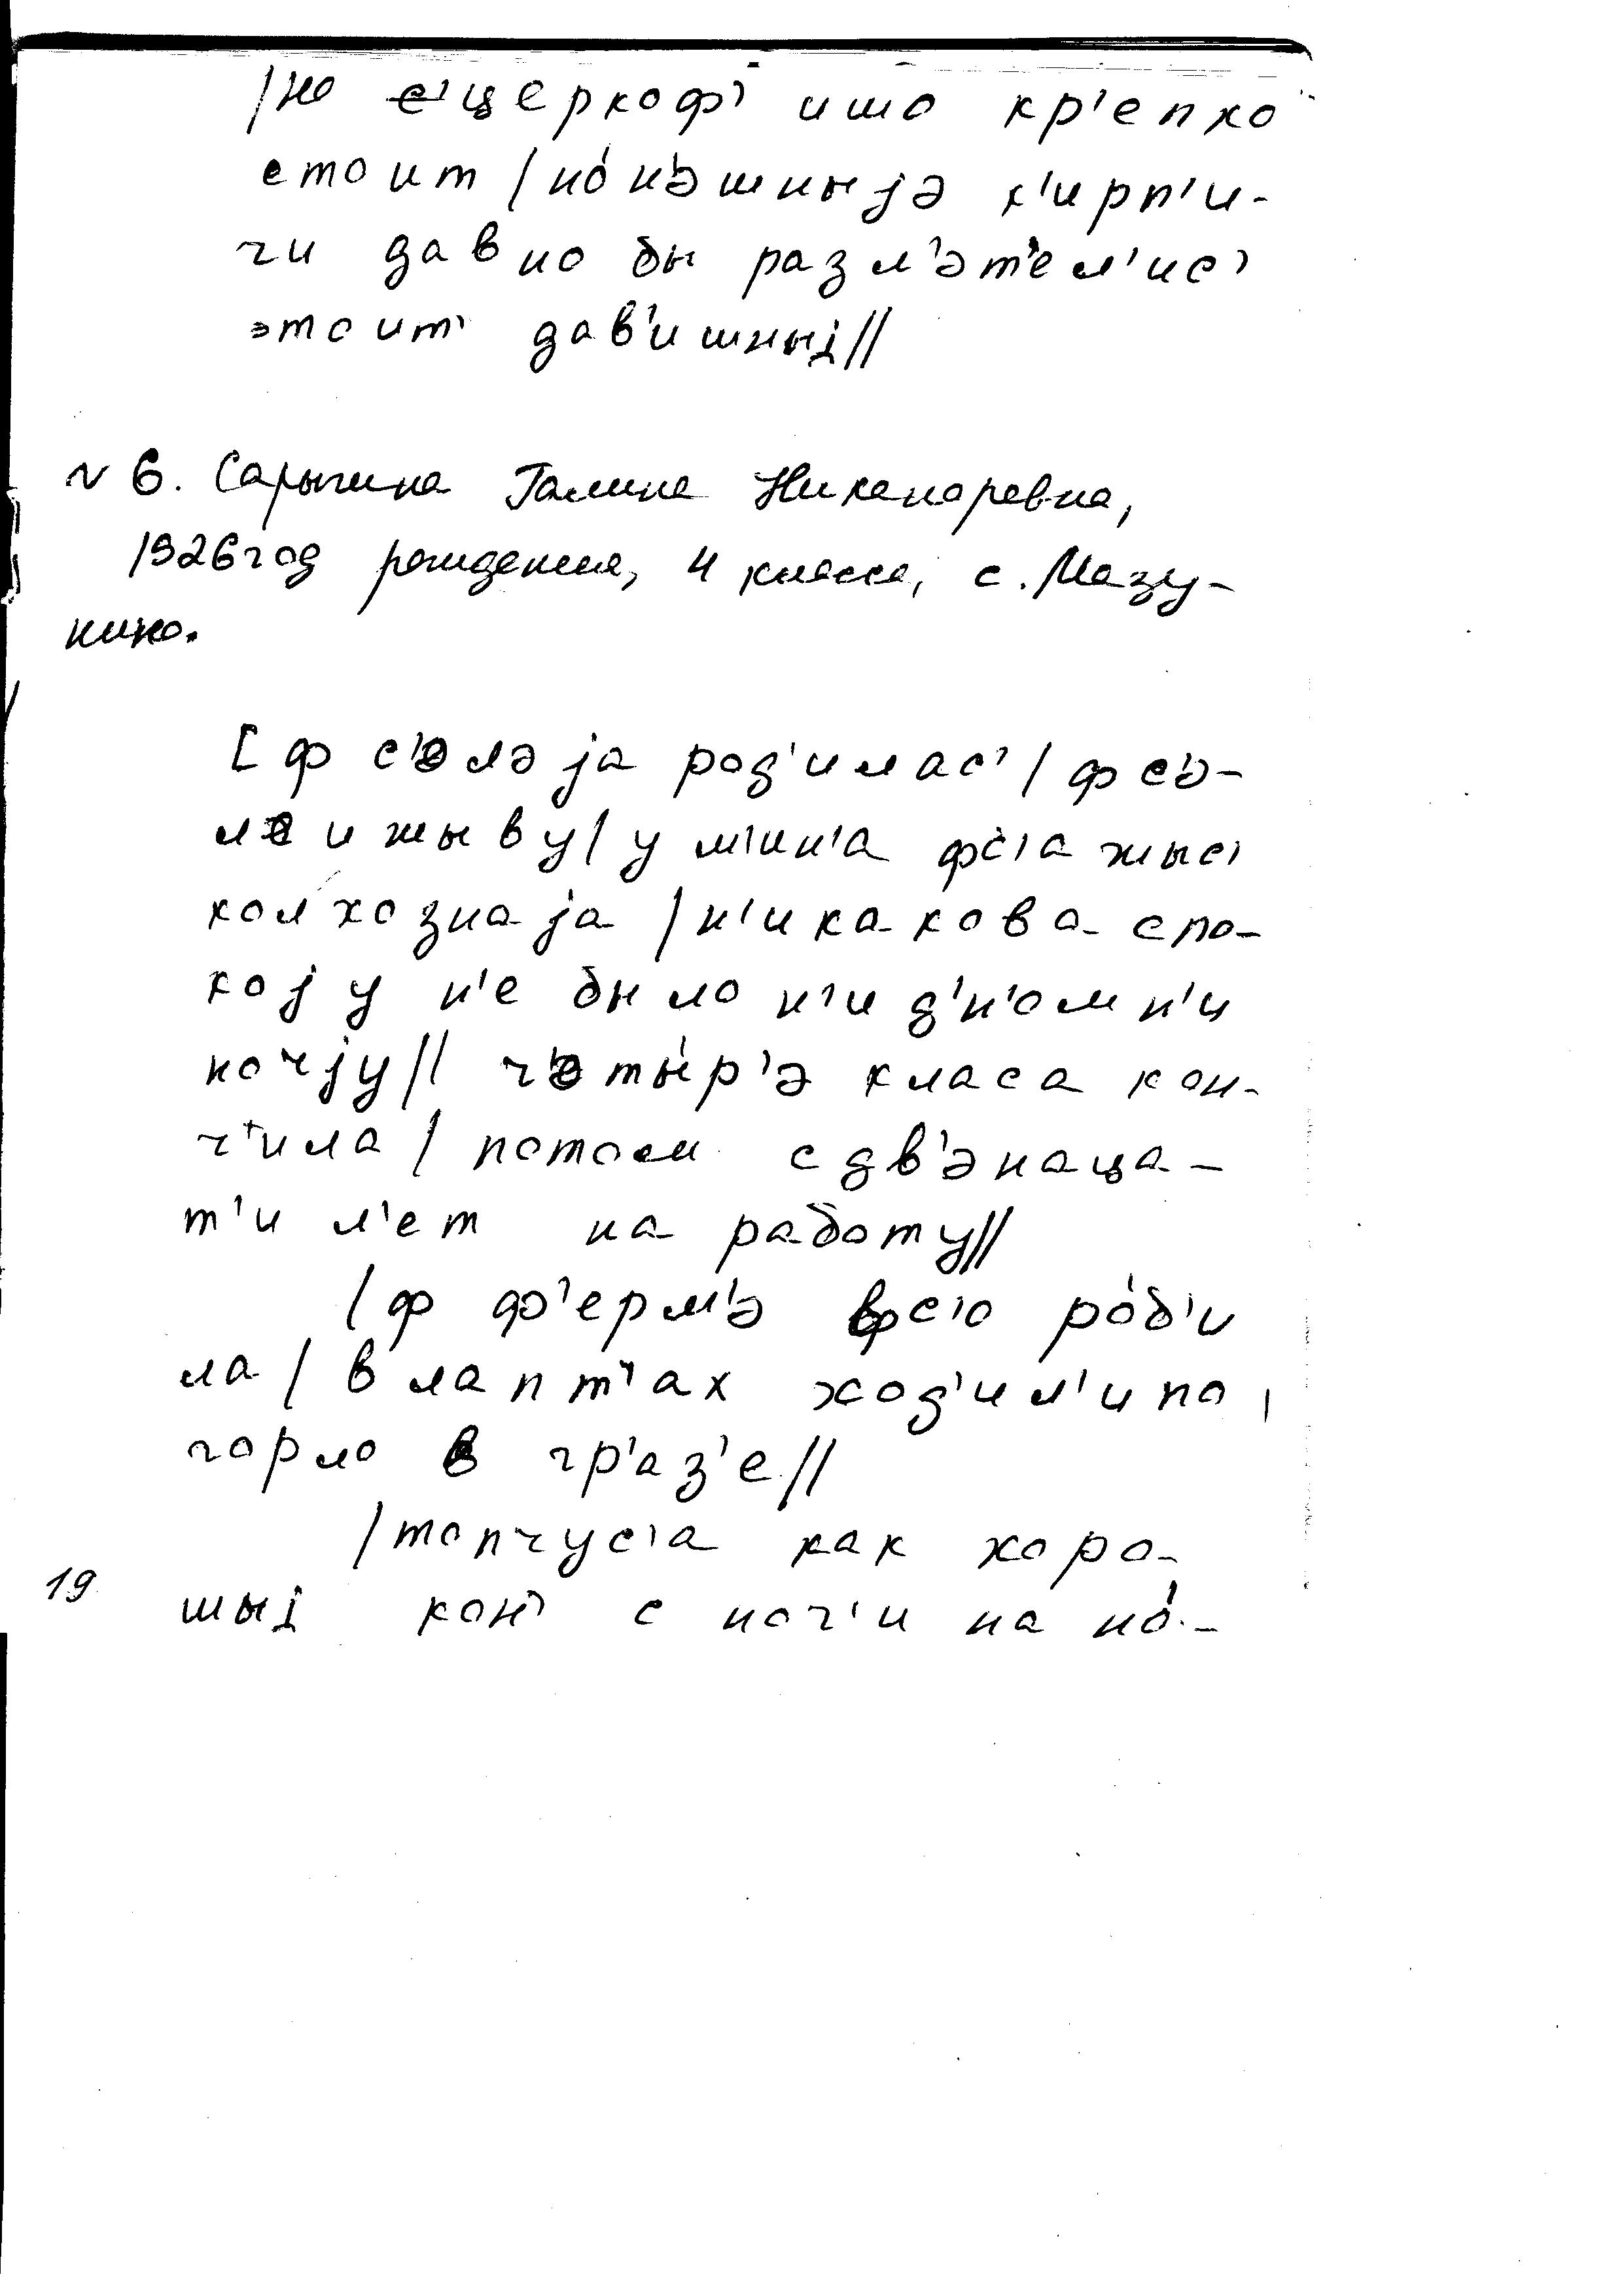 /но с'церкоф' ишо кр'епко
стоит / но́н'ə̇шныjə к'ирп'и-
чи давно бы разл'əт'ел'ис'
этоит' дав'ишныj//
№ 6. Сарычина Галина Никаноровна,
1926 год рождения, 4 класса, с. Мазу-
нино.
[ф с'əлəjа род'илас' / ф с'ə-
ле и жыву / у м'ин'а фс'а жыс'
колхознаjа / н'икакова спо-
коjу н'е было н'и д'н'ом н'и
ночjу// ч'əты́р'ə класа кон-
ч'ила / потом с дв'əнаца-
т'и л'ет на работу//
/ф ф'ерм'ə фс'о ро́б'и
ла / в лапт'ах ход'ил'и по
горло в гр'аз'е//
/топчус'а как хоро-
19 шыj кон' с ноч'и на но́-